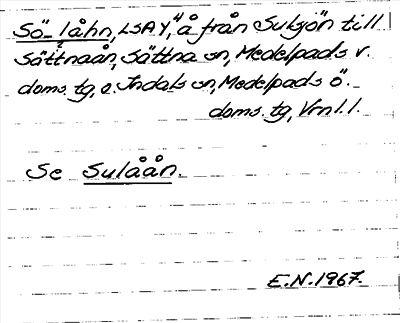 Sö_låhn, LSAY, "å från Sulsjön till
Sättnaån, Sättna sn, Medelpads v.
doms. tg, o. Indals sn, Medelpads ö.
doms. tg, Vrnl. l.
Se Sulåån.
E.N. 1967.